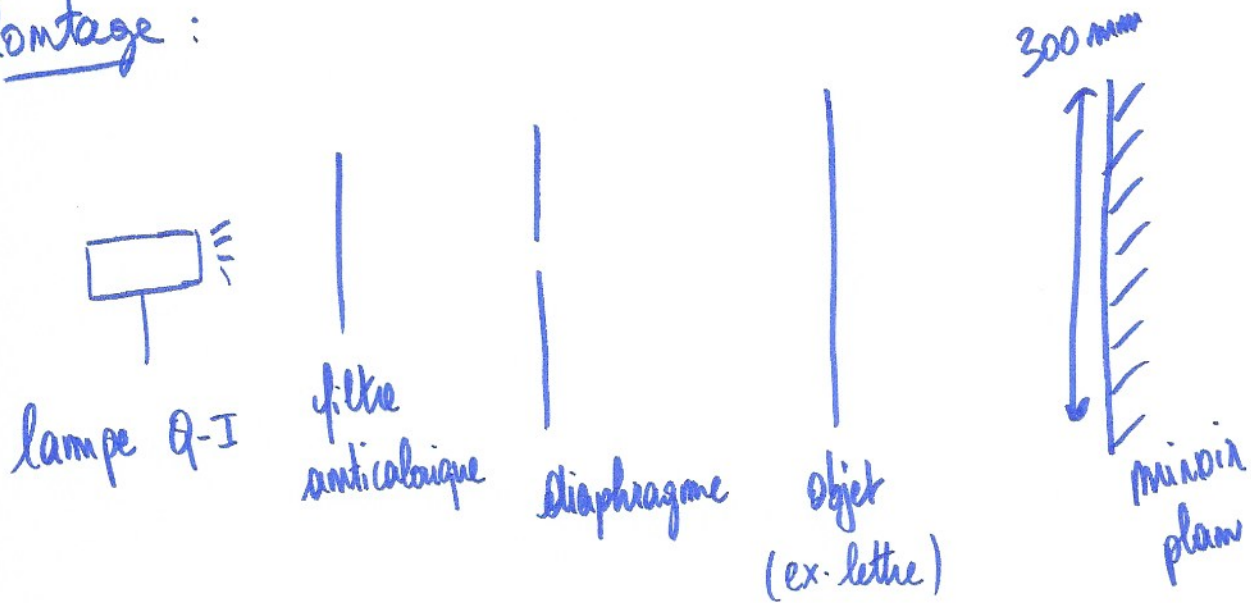 ontage :
300 mm
lampe Q-I
filtre
anticalorique
diaphragme
objet
(ex. lettre)
miroir
plan